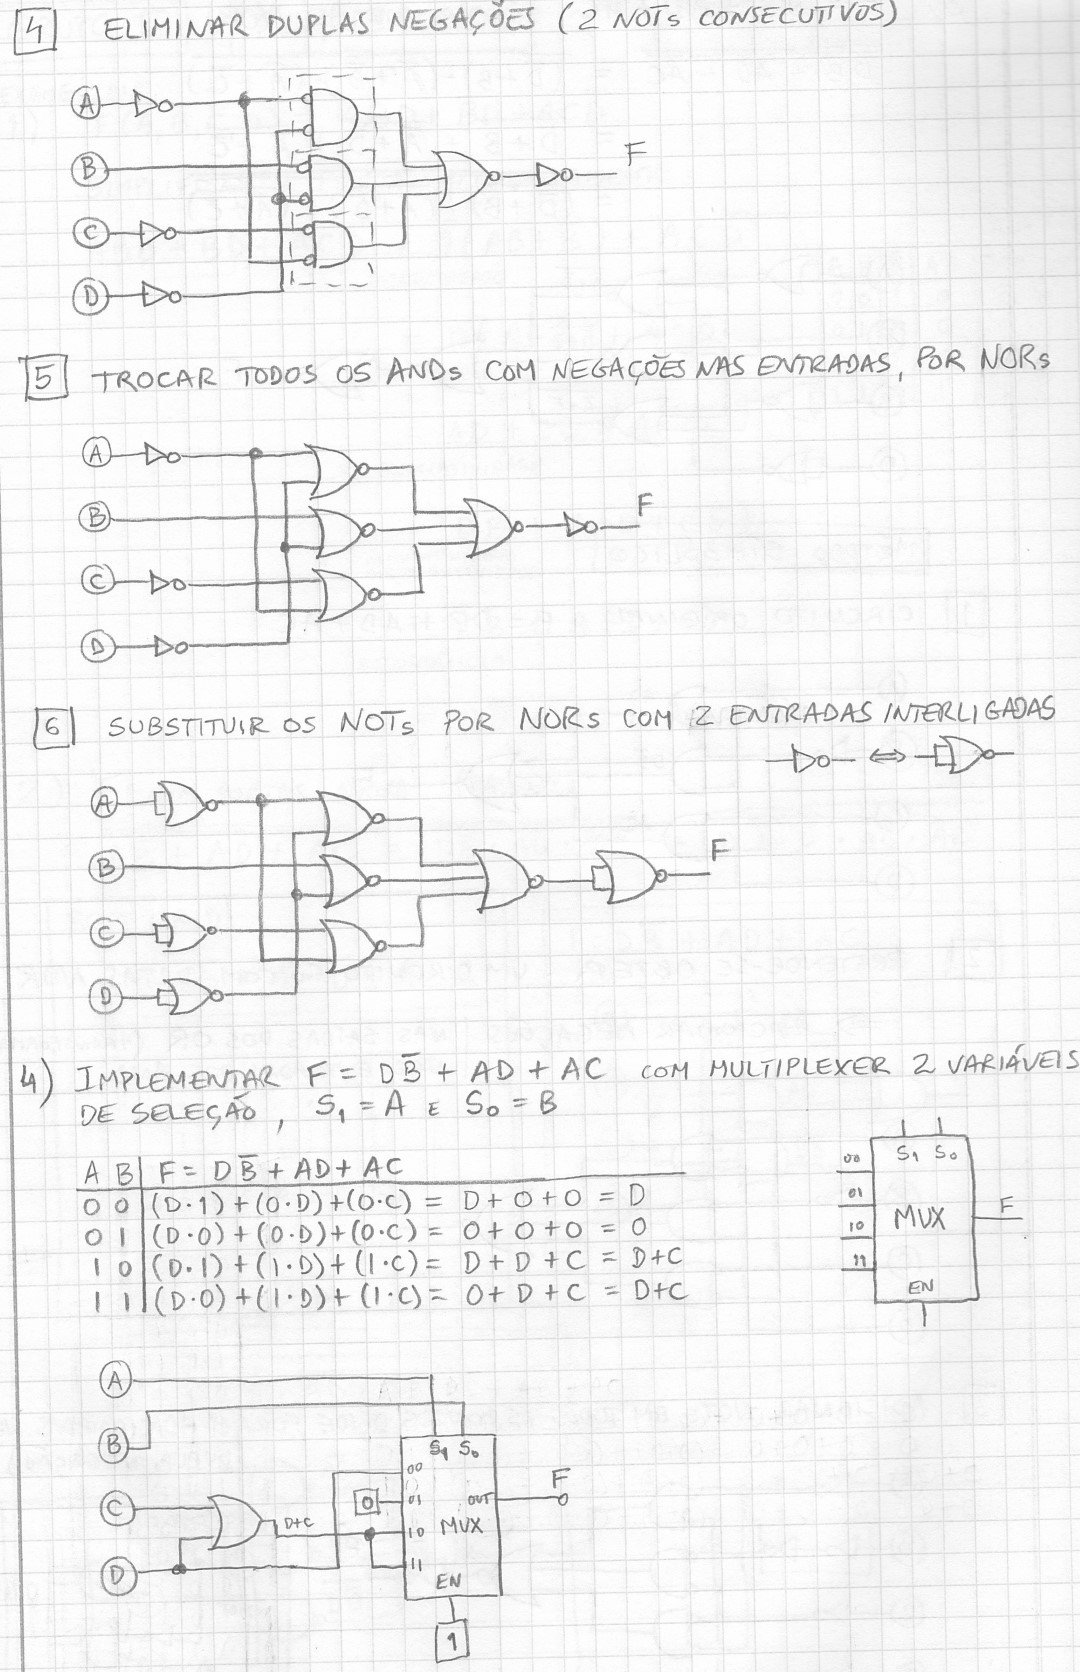 4 ELIMINAR DUPLAS NEGAÇÕES (2 NOTs CONSECUTIVOS)
A
B
C
D
F
5 TROCAR TODOS OS ANDs COM NEGAÇÕES NAS ENTRADAS, POR NORs
A
B
C
D
F
6 SUBSTITUIR OS NOTs POR NORs COM 2 ENTRADAS INTERLIGADAS
⇔
A
B
C
D
F
4) IMPLEMENTAR F = DB̅ + AD + AC COM MULTIPLEXER 2 VARIÁVEIS
DE SELEÇÃO, S₁ = A E S₀ = B
A B F = DB̅ + AD + AC
0 0 (D·1)+(0·D)+(0·C) = D+0+0 = D
0 1 (D·0)+(0·D)+(0·C) = 0+0+0 = 0
1 0 (D·1)+(1·D)+(1·C) = D+D+C = D+C
1 1 (D·0)+(1·D)+(1·C) = 0+D+C = D+C
S₁ S₀
00
01
10
11
MUX
F
EN
A
B
C
D
D+C
0
S₁ S₀
00
01
10
11
OUT
MUX
EN
F
1